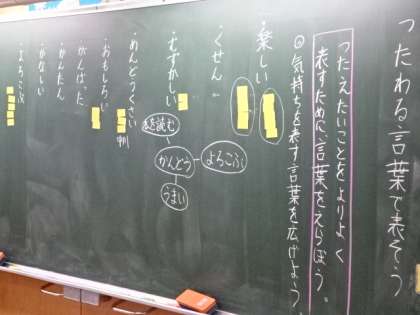 つたわる言葉で表そう
つたえたいことをよりよく
表すために、言葉をえらぼう。
◎気持ちを表す言葉を広げよう。
・楽しい
・くせん
・むずかしい
・めんどうくさい
・おもしろい
・がんばった
・かんたん
・かなしい
・よろこぶ
本を読む
かんどう
よろこぶ
うまい